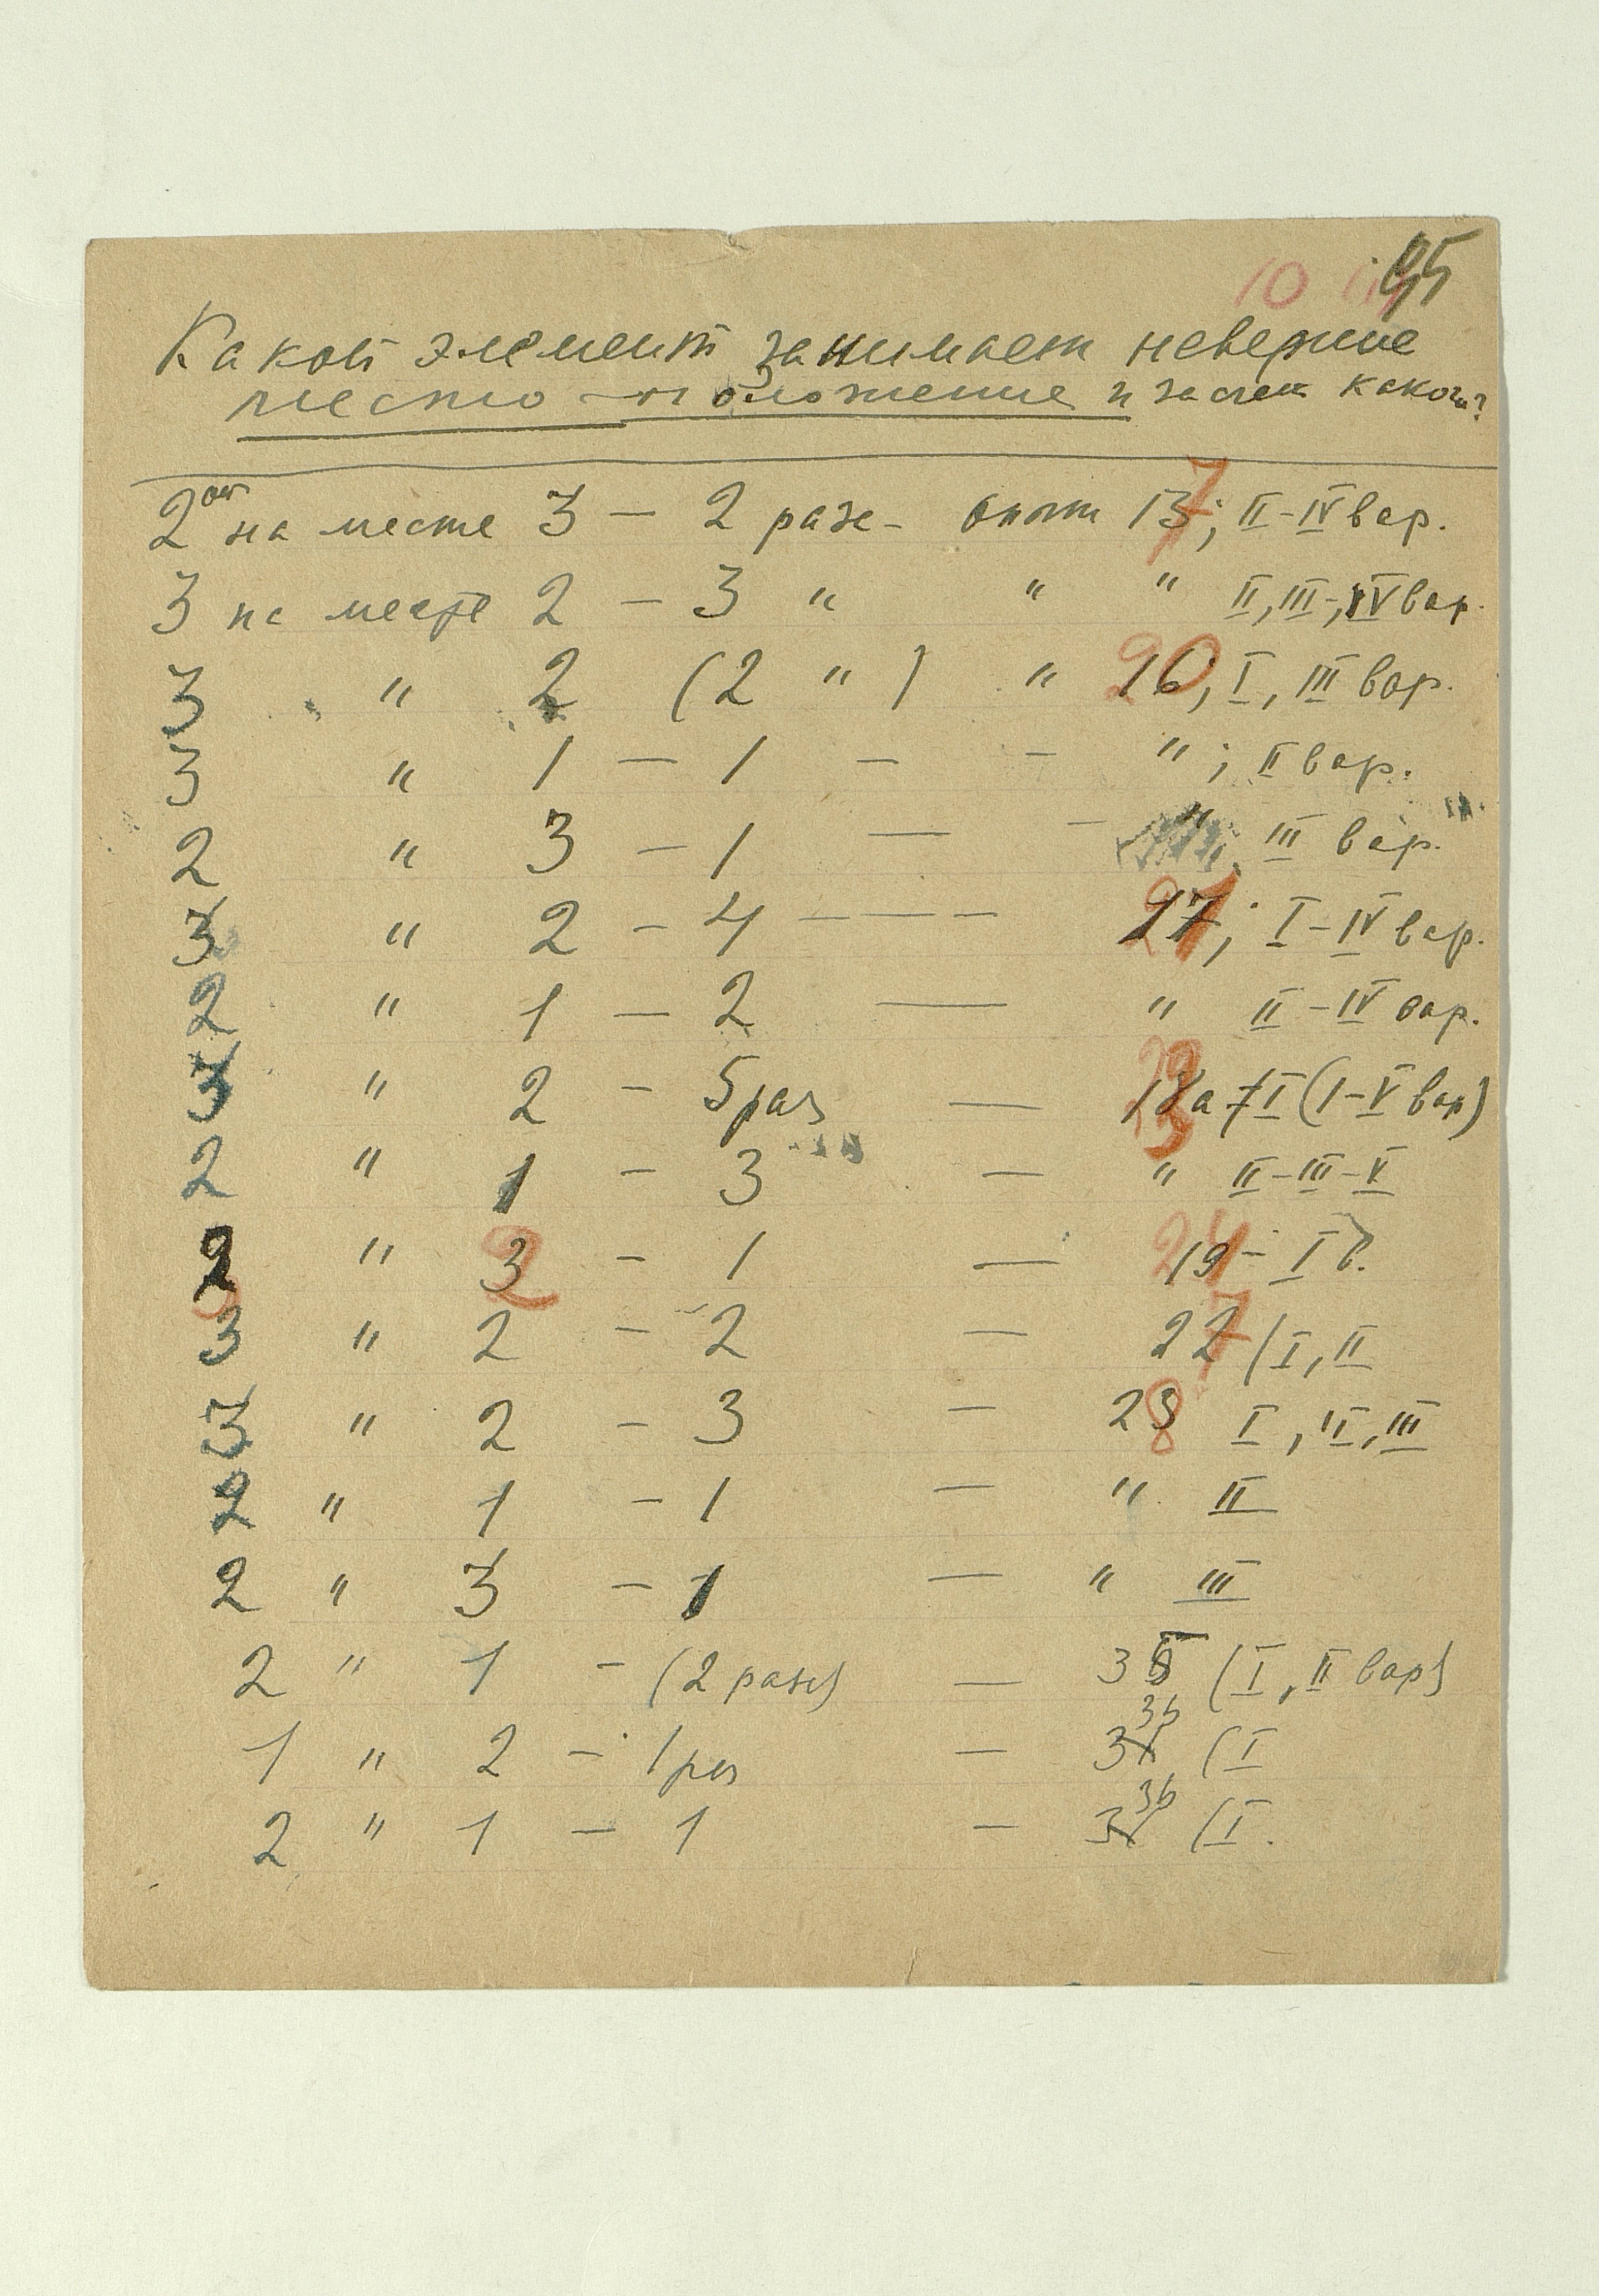 10 95
Какой элемент занимает неверное
место — положение и за счет какого?
2ой на месте 3 — 2 раза - опыт 17; II-IV вар.
3 на месте 2 — 3 " " " II, III-, IV вар.
3 " 2 (2 " ) " 20, I, III вар.
3 " 1 — 1 — - "; II вар.
2 " 3 — 1 — - " III вар.
3 " 2 - 4 — — — 27; I-IV вар.
2 " 1 — 2 — " II-IV вар.
3 " 2 - 5 раз — а I (I-V вар)
2 " 1 - 3 — " II-III-V
" 2 - 1 — 24 - I в.
3 " 2 - 2 — 27 (I, II
3 " 2 - 3 — 28 I, II, III
2 " 1 - 1 — " II
2 " 3 - 1 — " III
2 " 1 - (2 раза) — 35 (I, II вар)
1 " 2 - 1 раз — 36 (I
2 " 1 — 1 — 36 (I.